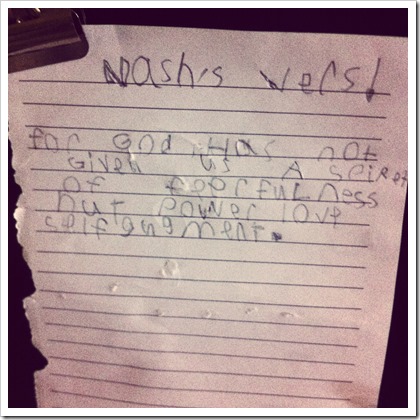 Nash,s vers!
for God Has not
Given us A spiret
of feerfulness
but power love
selfgugment.